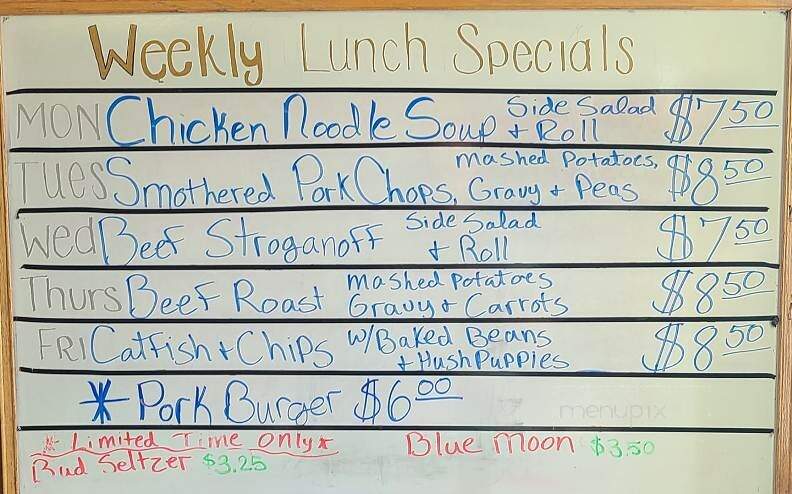 Weekly Lunch Specials
MON Chicken Noodle Soup Side Salad + Roll $7.50
TUES Smothered Pork Chops, Mashed Potatoes, Gravy + Peas $8.50
Wed Beef Stroganoff Side Salad + Roll $7.50
Thurs Beef Roast Mashed Potatoes Gravy + Carrots $8.50
FRI Catfish + Chips w/Baked Beans + HushPuppies $8.50
* Pork Burger $6.00
menupix
* Limited Time Only *
Bud Seltzer $3.25 Blue Moon $3.50